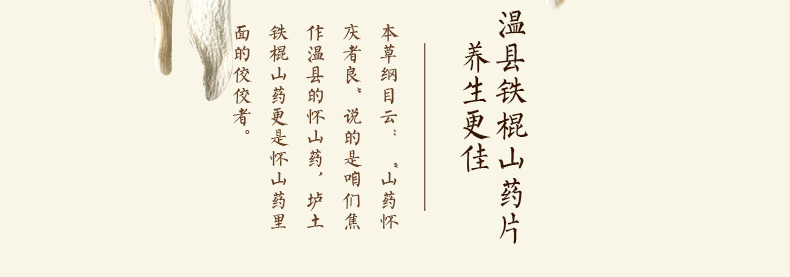 温县铁棍山药片
养生更佳
本草纲目云：“山药怀
庆者良”。说的是咱们焦
作温县的怀山药，垆土
铁棍山药更是怀山药里
面的佼佼者。